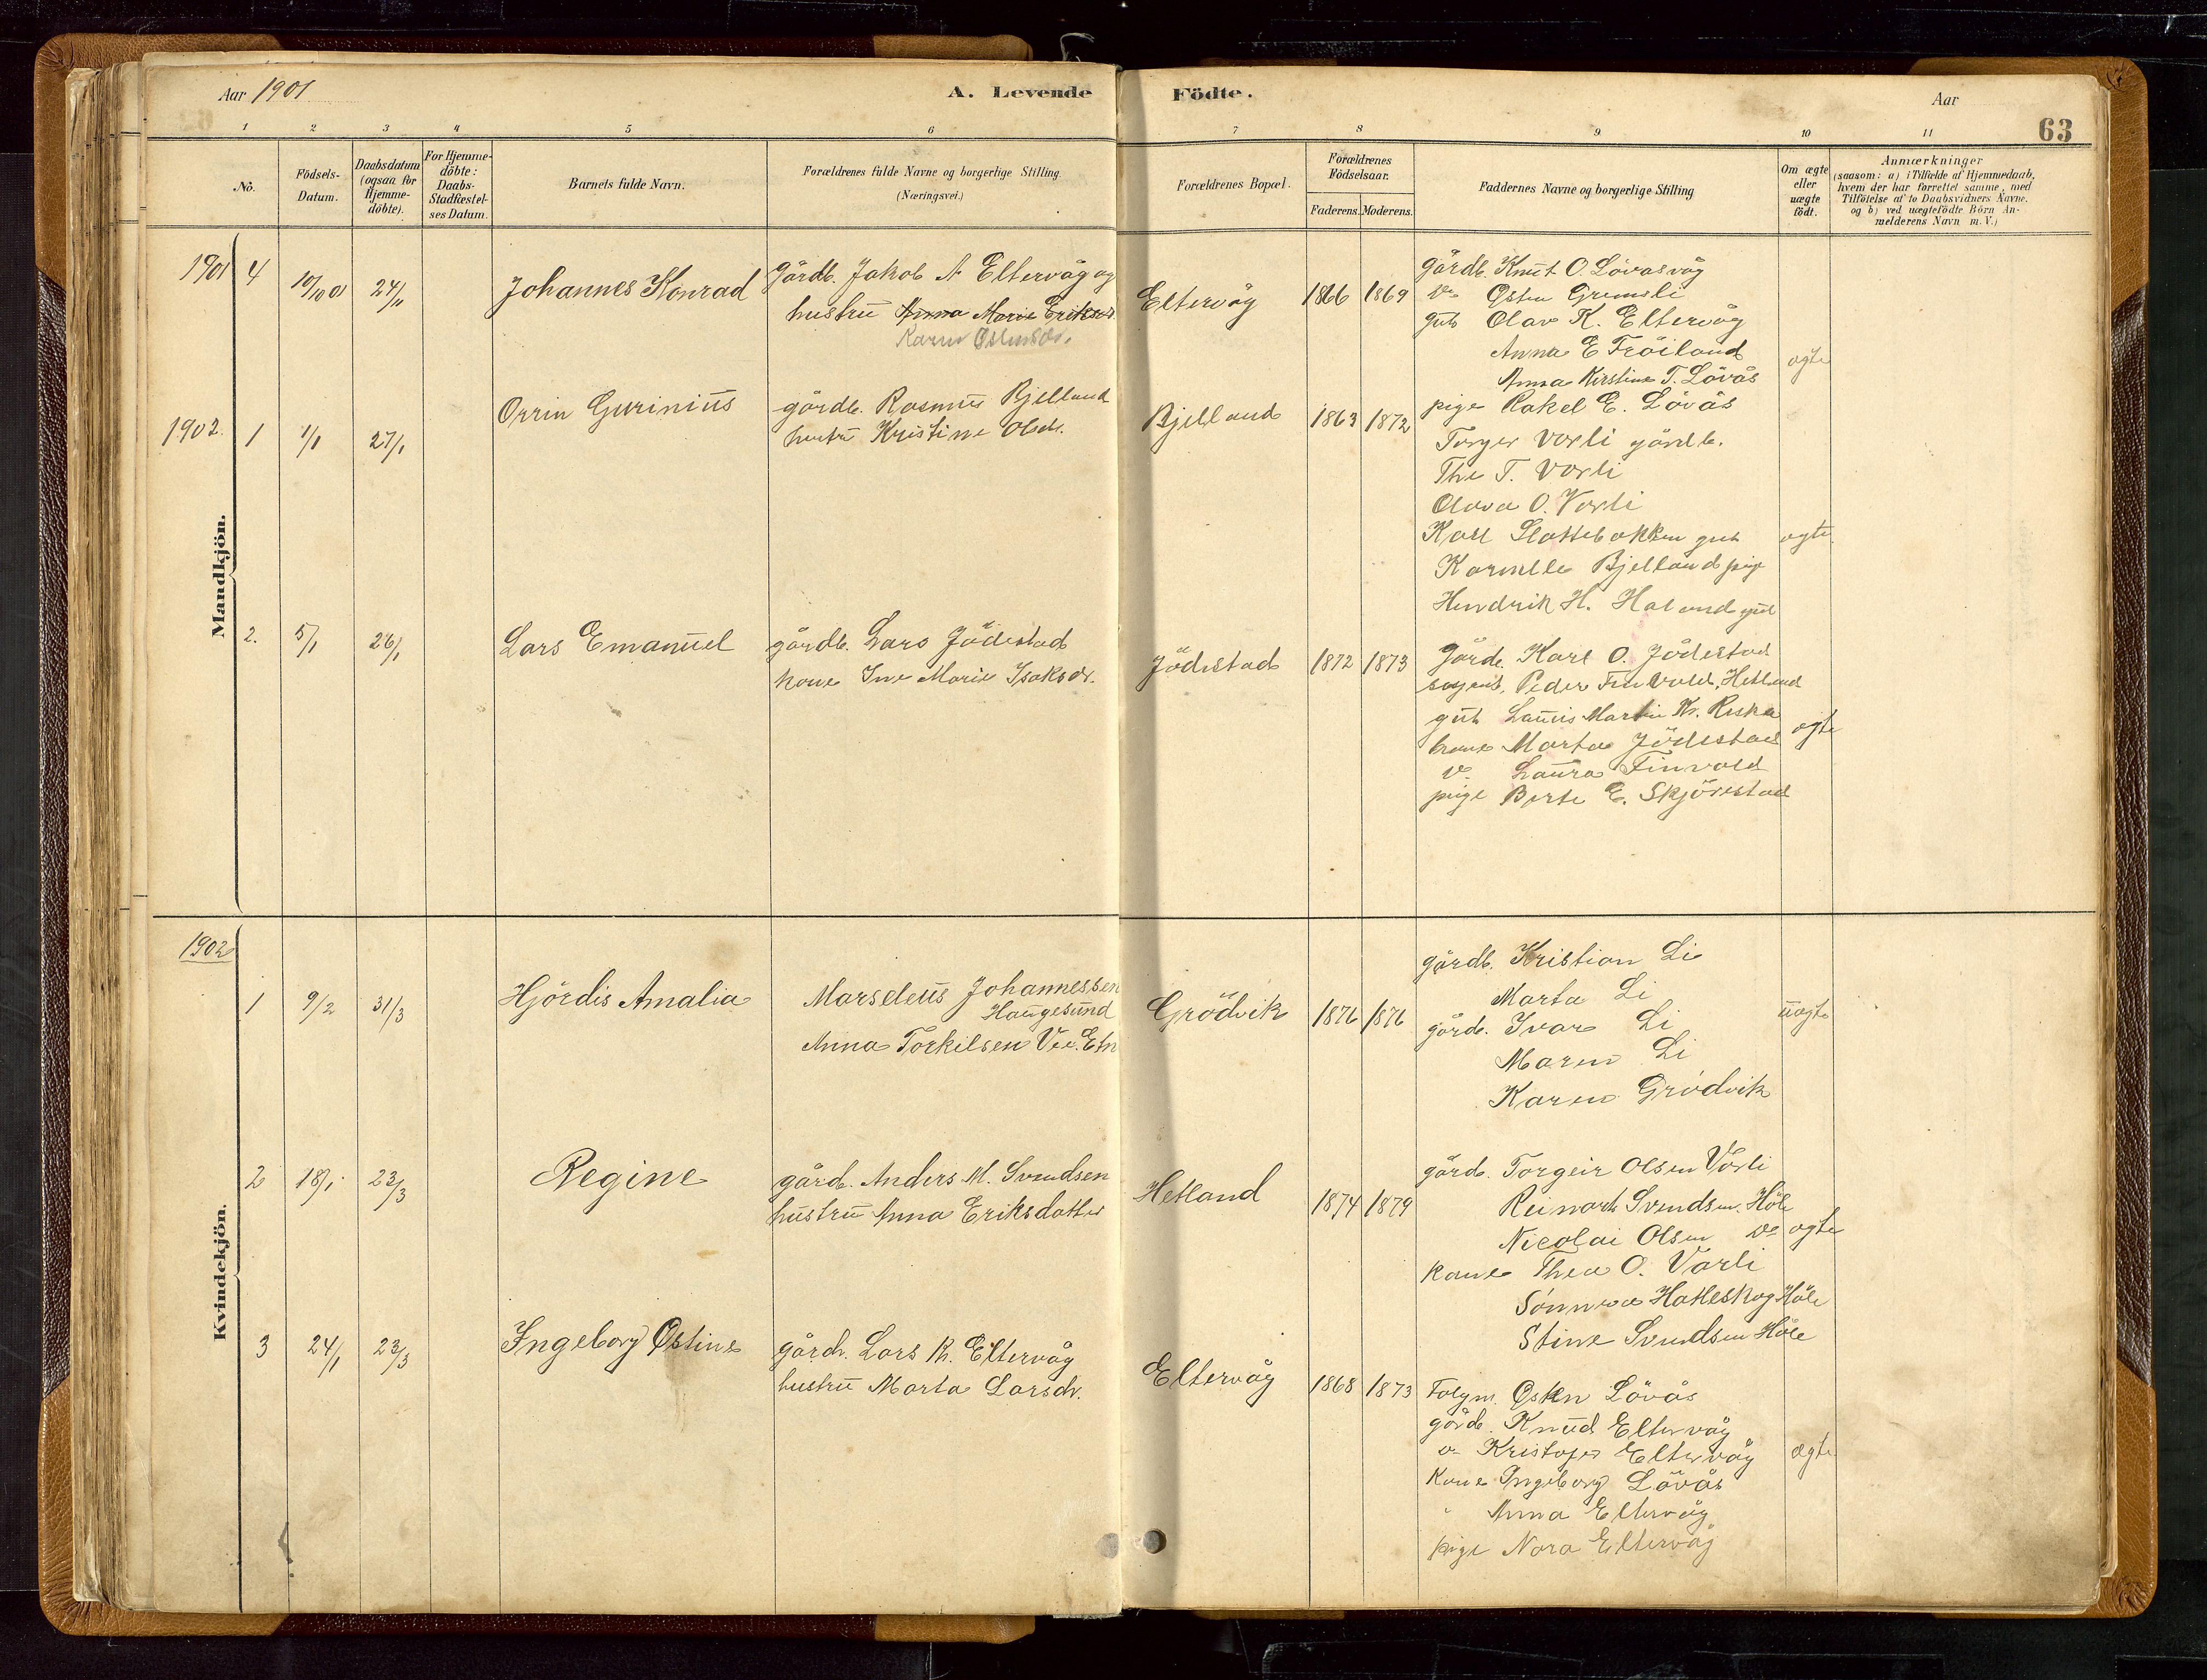 Aar 1901
A. Levende Födte.
Aar
63
1 2 3 4 5 6 7 8 9 10 11
No.
Födsels-Datum.
Daabsdatum (ogsaa for Hjemme-döbte).
For Hjemme-döbte: Daabs-Stadfæstel-ses Datum.
Barnets fulde Navn.
Forældrenes fulde Navne og borgerlige Stilling.
(Næringsvei.)
Forældrenes Bopæl.
Forældrenes Födselsaar.
Faderens. Moderens.
Faddernes Navne og borgerlige Stilling
Om ægte eller uægte födt.
Anmærkninger
(saasom: a) i Tilfælde af Hjemmedaab,
hvem der har forrettet samme, med
Tilföielse af to Daabsvidners Navne.
og b) ved uægtefödte Börn An-
melderens Navn m. V.)
Mandkjön.
1901 4 10/10 01 24/11 Johannes Konrad
gårdb. Jakob A Eltervåg og
hustru Anna Marie Eriksd.
Karen Østensdr.
Eltervåg 1866 1869
gårdb. Knut O. Lövåsvåg
Do Østen Gremsli
gut Olav K. Eltervåg
Anna E Fröiland
Anna Kirstine T. Lövås
pige Rakel E. Lövås
ægte
1902. 1 1/1 27/1 Orrin Gurinius
gårdb. Rasmus Bjelland
hustru Kristine Olsdr.
Bjelland 1863 1872
Torger Vorli gårdb.
The T. Vorli
Olava O. Vorli
Karl Slottebakken gut
Karnelle Bjelland pige
Hendrik H. Haland gut
ægte
2. 5/1 26/1 Lars Emanuel
gårdb. Lars Jödestad
kone Ine Marie Isaksdr.
Jödestad 1872 1873
Gårdb. Karl O. Jödestad
Peder Finvold, Hetland
gut Lauris Martin Kr. Riska
kone Marta Jödestad
Do Laura Finvold
pige Berte E. Skjörestad
ægte
Kvindekjön.
1902
1 9/2 31/3 Hjördis Amalia
Marselius Johannessen
Haugesund
Anna Torkilsen Vee. Etn
Grödvik 1876 1876
gårdb. Kristian Li
Marta Li
gårdb. Ivar Li
Maren Li
Karen Grödvik
uægte
2 18/1 23/3 Regine
gårdb. Anders M. Svendsen
hustru Anna Eriksdatter
Hetland 1874 1879
gårdb. Torgeir Olsen Vårli
Reinart Svendsen, Höle
Nicolai Olsen Do
kone Thea O. Varli
Sönneva Hatleskog Höle
Stine Svendsen Höle
ægte
3 24/1 23/3 Ingeborg Østine
gårdb. Lars K. Eltervåg
hustru Marta Larsdr.
Eltervåg 1868 1873
Folgm. Østen Lövås
gårdb. Knud Eltervåg
Do Kristofer Eltervåg
Kone Ingeborg Lövås
" Anna Eltervåg
pige Nora Eltervåg
ægte